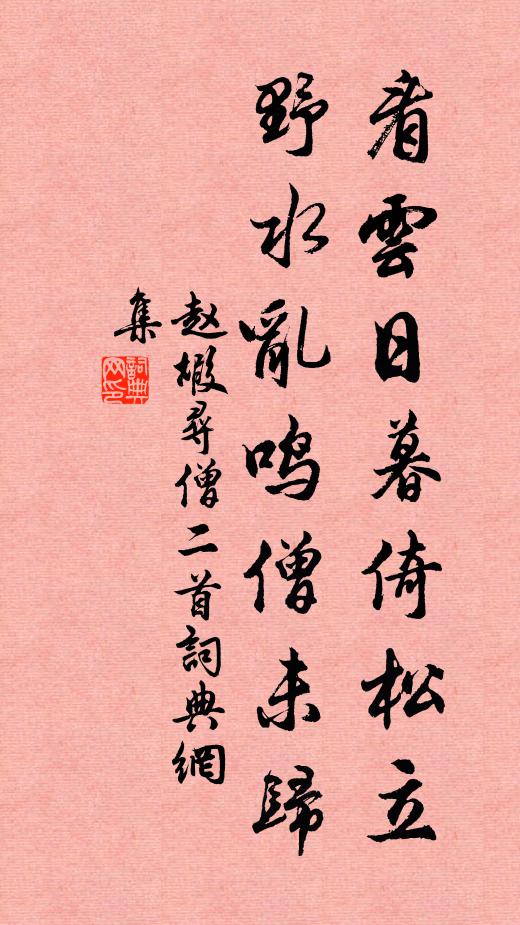 看雲日暮倚松立
野水亂鳴僧未歸
赵嘏尋僧二首詞典網
集
詞典
网印